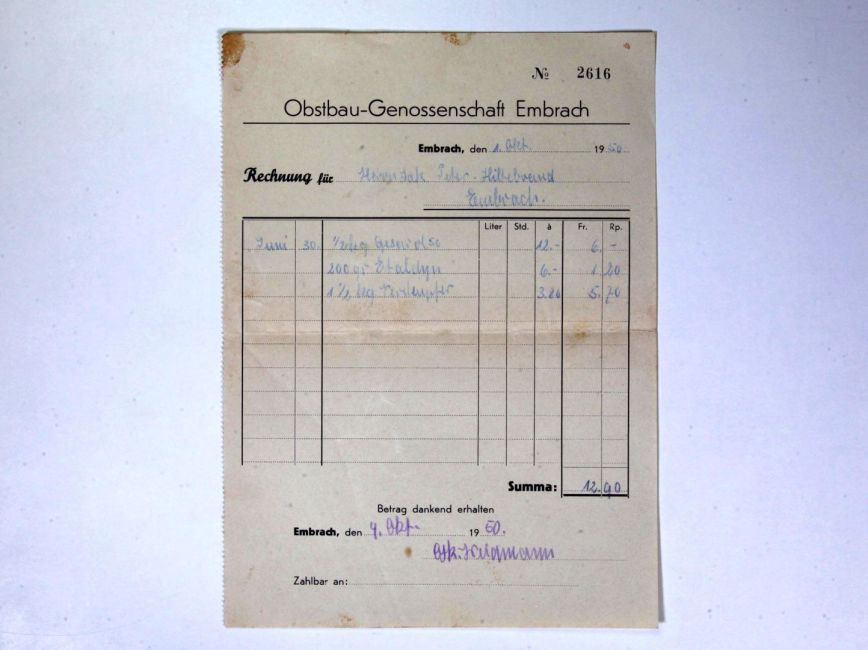 № 2616
Obstbau-Genossenschaft Embrach
Embrach, den 1. Okt. 1950
Rechnung für Herrn Jak. Peter-Hildebrand
Embrach.
Liter Std. à Fr. Rp.
Juni 30. 1/2 kg Gesarol 50 12.- 6. -
200 gr 6.- 1.20
1 1/2 kg 3.80 5.70
Summa: 12.90
Betrag dankend erhalten
Embrach, den 9. Okt. 1950.
Zahlbar an: